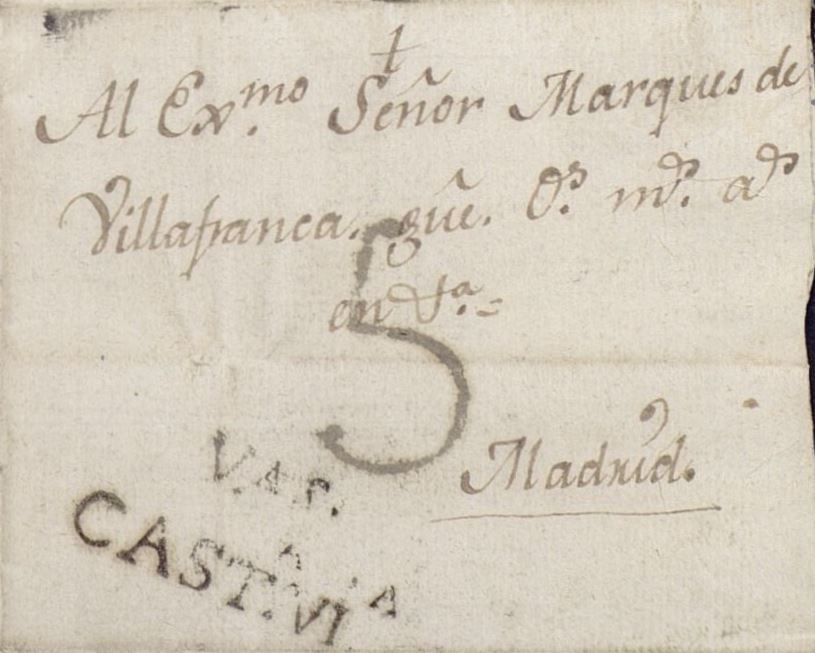 Al Ex.mo Señor Marques de
Villafranca. gũe. Ds. ms. as.
en
5
Madrid.
CAST.VI
A